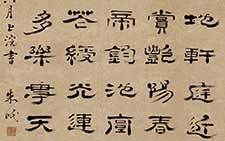 地軒庭近
賞艷陽春
池
花綬光連
多樂事天
月上浣書
朱